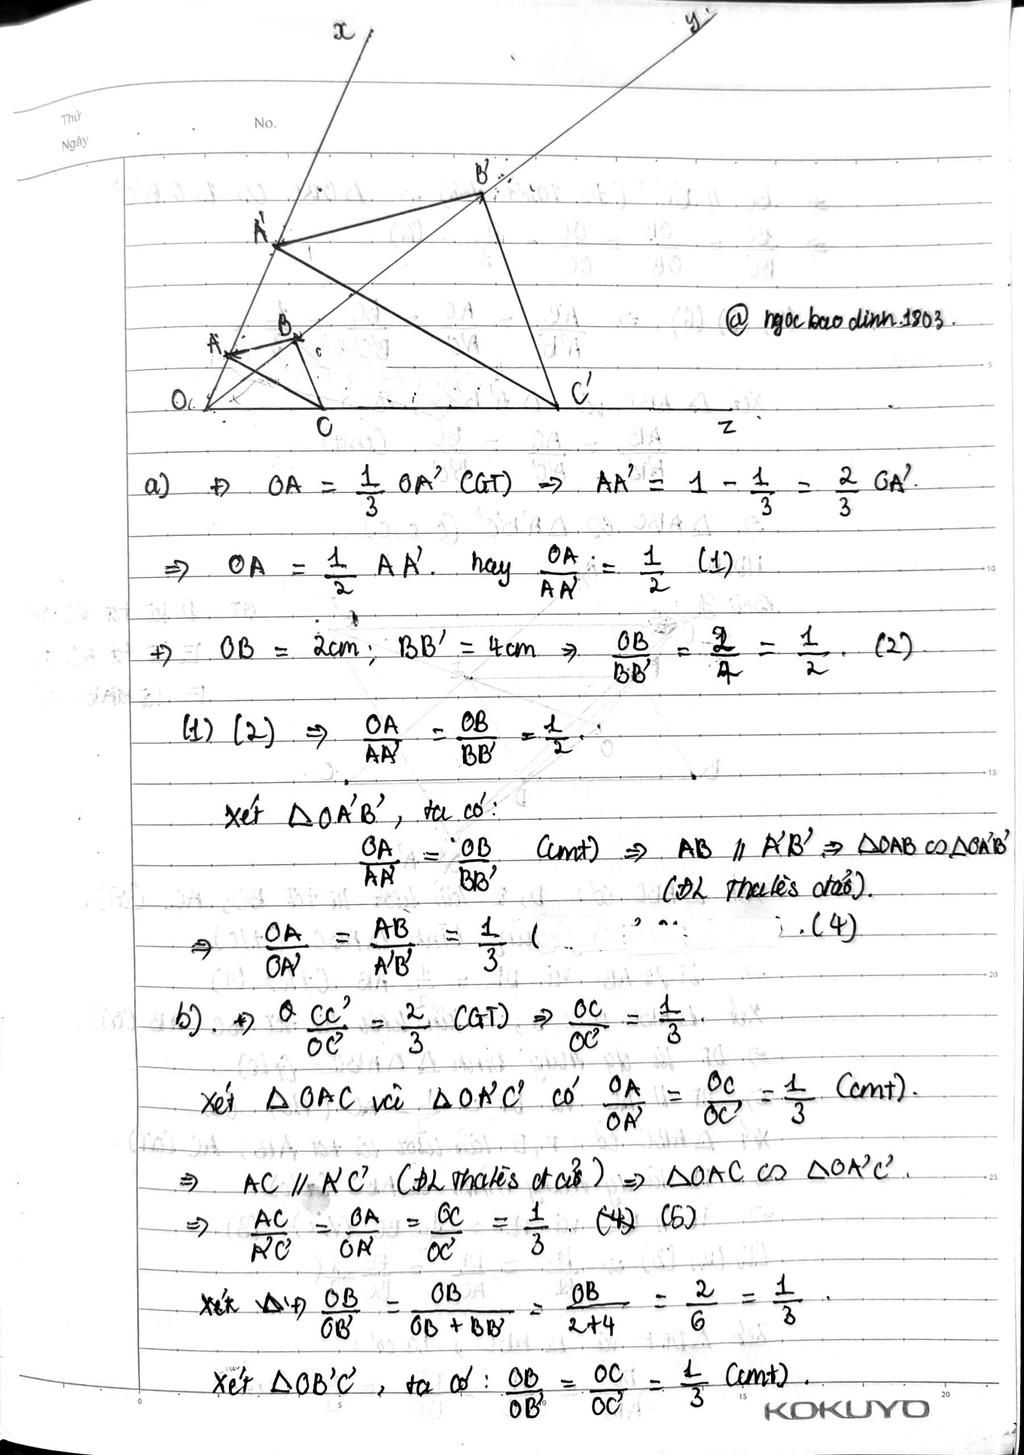 x y
Thứ
Ngày
No.
B'
A'
A B
@ ngocbaodinh.1803.
O C C' z
a) +) OA = 1/3 OA' (GT) => AA' = 1 - 1/3 = 2/3 OA'.
=> OA = 1/2 AA'. hay OA/AA' = 1/2 (1)
+) OB = 2cm; BB' = 4cm => OB/BB' = 2/4 = 1/2. (2)
(1) (2) => OA/AA' = OB/BB' = 1/2.
Xét △OA'B', ta có:
OA/AA' = OB/BB' (cmt) => AB // A'B' => △OAB ∽ △OA'B'
(ĐL Thalès đảo).
=> OA/OA' = AB/A'B' = 1/3 ( . (4)
b). +) CC'/OC' = 2/3 (GT) => OC/OC' = 1/3.
Xét △OAC và △OA'C' có OA/OA' = OC/OC' = 1/3 (cmt).
=> AC // A'C' (ĐL Thalès đảo) => △OAC ∽ △OA'C'.
=> AC/A'C' = OA/OA' = OC/OC' = 1/3. (5)
+) OB/OB' = OB/OB + BB' = OB/2+4 = 2/6 = 1/3.
Xét △OB'C', ta có: OB/OB' = OC/OC' = 1/3 (cmt).
5
10
15
20
25
0 5 15 20
KOKUYO